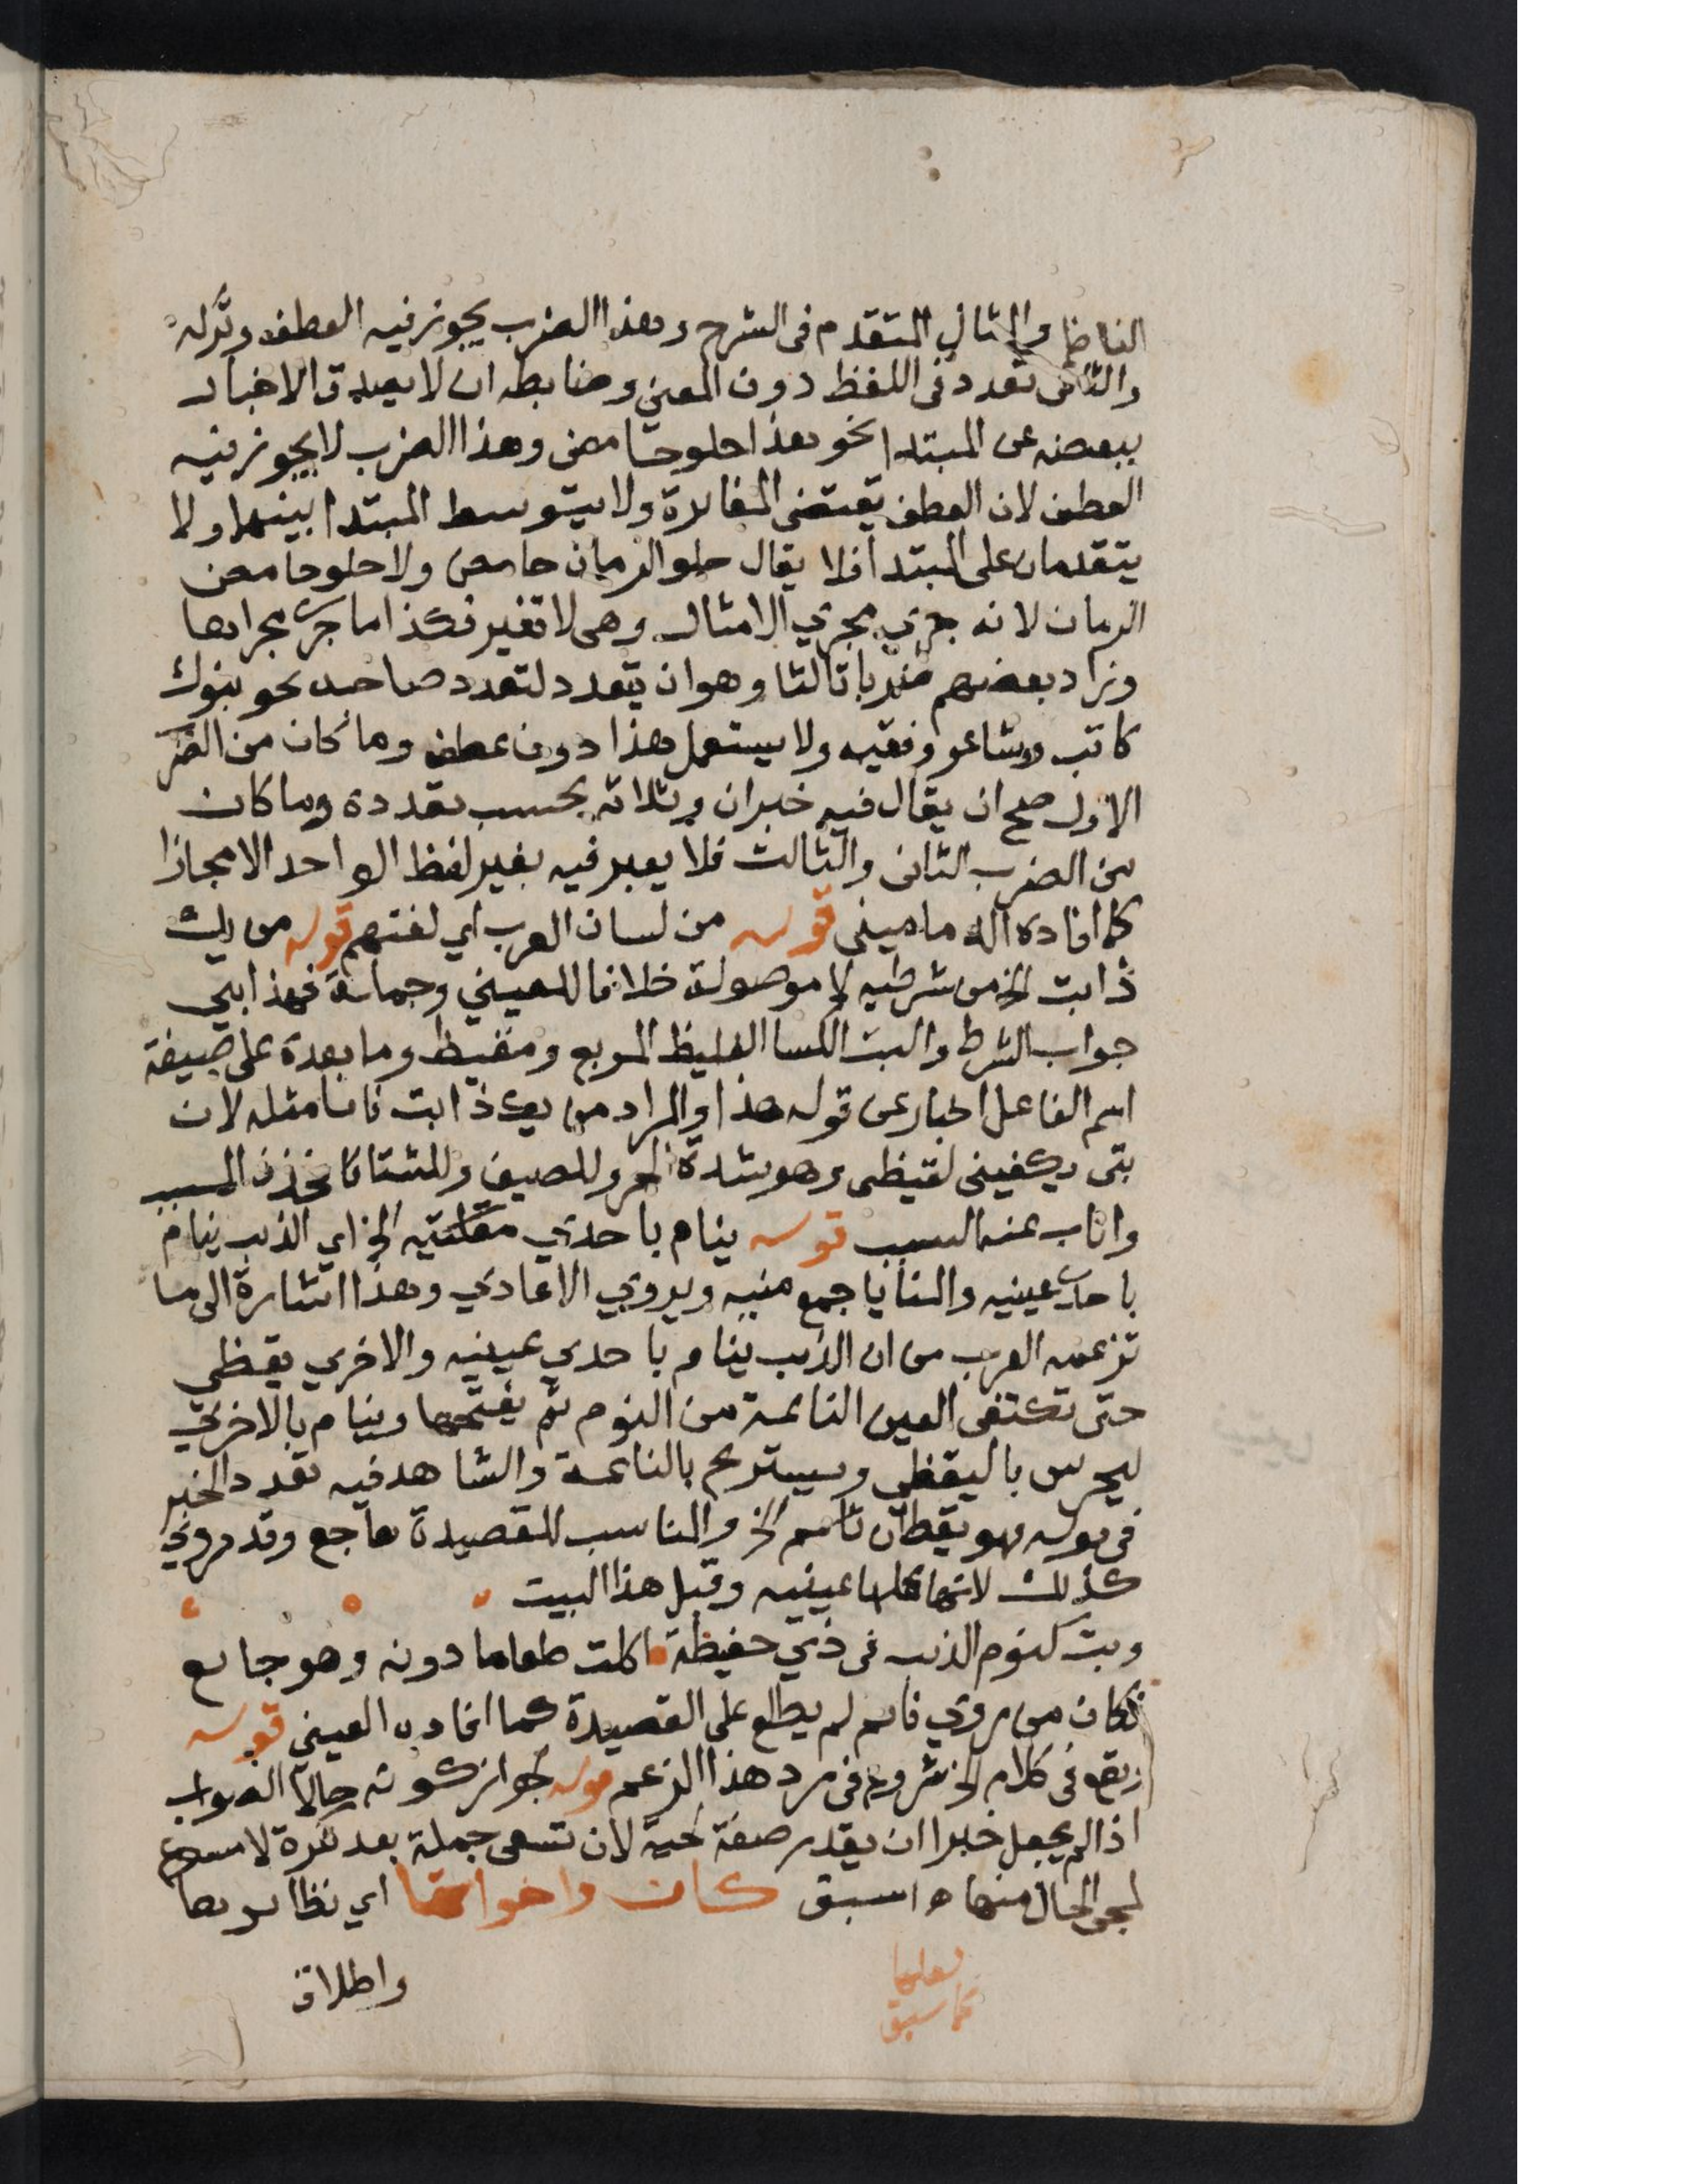 الناظم والمثال المتقدم فى الشرح وهذا الضرب يجوز فيه العطف وتركه
والثانى تعدد فى اللفظ دون المعنى وضابطه ان لا يصدق الاخبار
ببعضه عن المبتدا نحو هذا حلو حامض وهذا الضرب لا يجوز فيه
العطف لان العطف يقتضى المغايرة ولا يتوسط المبتدا بينهما ولا
يتقدمان على المبتدا فلا يقال حلو الرمان حامض ولا حلو حامض
الرمان لانه جري مجري الامثال وهى لا تغير فكذا ما جري مجراها
وزاد بعضهم ضربا ثالثا وهو ان يتعدد لتعدد صاحبه نحو بنوك
كاتب وشاعر وفقيه ولا يستعمل هذا دون عطف وما كان من الضرب
الاول صح ان يقال فيه خبران وثلاثة بحسب تعدده وما كان
من الضرب الثانى والثالث فلا يعبر فيه بغير لفظ الواحد الا مجازا
كما افاده الدمامينى قوله من لسان العرب اي لغتهم قوله من يك
ذا بت الخ من شرطيه لا موصولة خلافا للعيني وجماعة فهذا بتي
جواب الشرط والبت الكسا الغليظ المربع ومقيظ وما بعده على صيغة
اسم الفاعل اخبار عن قوله هذا والمراد من يك ذا بت فانا مثله لان
بتى يكفينى لقيظى وهو شدة الحر وللصيف وللشتا فحذف المسبب
واناب عنه السبب قوله ينام باحدي مقلتيه الخ اي الذيب ينام
باحدي عينيه والمنايا جمع منيه ويروي الاعادي وهذا اشارة الى ما
تزعمه العرب من ان الذيب ينام باحدي عينيه والاخري يقظي
حتى تكتفى العين النائمة من النوم ثم يفتحها وينام بالاخري
ليحرس باليقظي ويستريح بالنائمة والشاهد فيه تعدد الخبر
فى قوله فهو يقظان نائم الخ والمناسب للقصيدة هاجع وقد روي
كذلك لانها كلها عينيه وقبل هذا البيت
وبت كنوم الذيب فى ذي حفيظة اكلت طعاما دونه وهو جائع
فكان من روي نائم لم يطلع على القصيدة كما افاده العينى قوله
زيقع فى كلام الخ شروع فى رد هذا الزعم قوله لجواز كونه حالا الصواب
اذا لم يجعل خبرا ان يقدر صفة لحية لان تسعى جملة بعد نكرة لا مسوغ
لمجي الحال منها ه اسبق كان واخواتها اي نظائرها
كما سبق
واطلاق